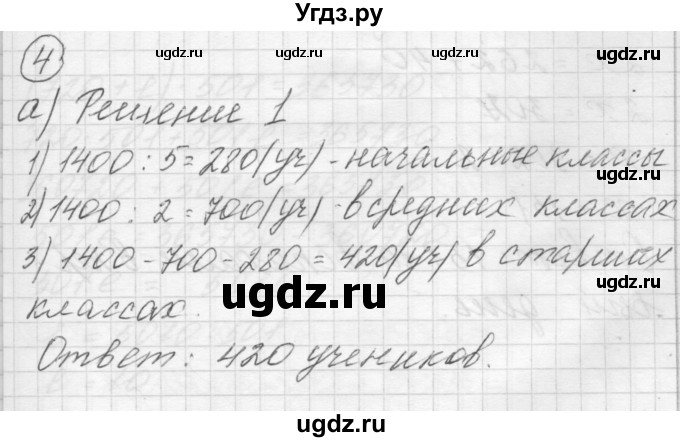 Угдз.ру
ugdz.ru ugdz.ru ugdz.ru
4
а) Решение 1
1) 1400 : 5 = 280 (уч) - начальные классы
ugdz.ru
2) 1400 : 2 = 700 (уч) - в средних классах
ugdz.ru ugdz.ru
3) 1400 - 700 - 280 = 420 (уч) в старших
ugdz.ru
классах.
Ответ: 420 учеников.
ugdz.ru ugdz.ru
ugdz.ru